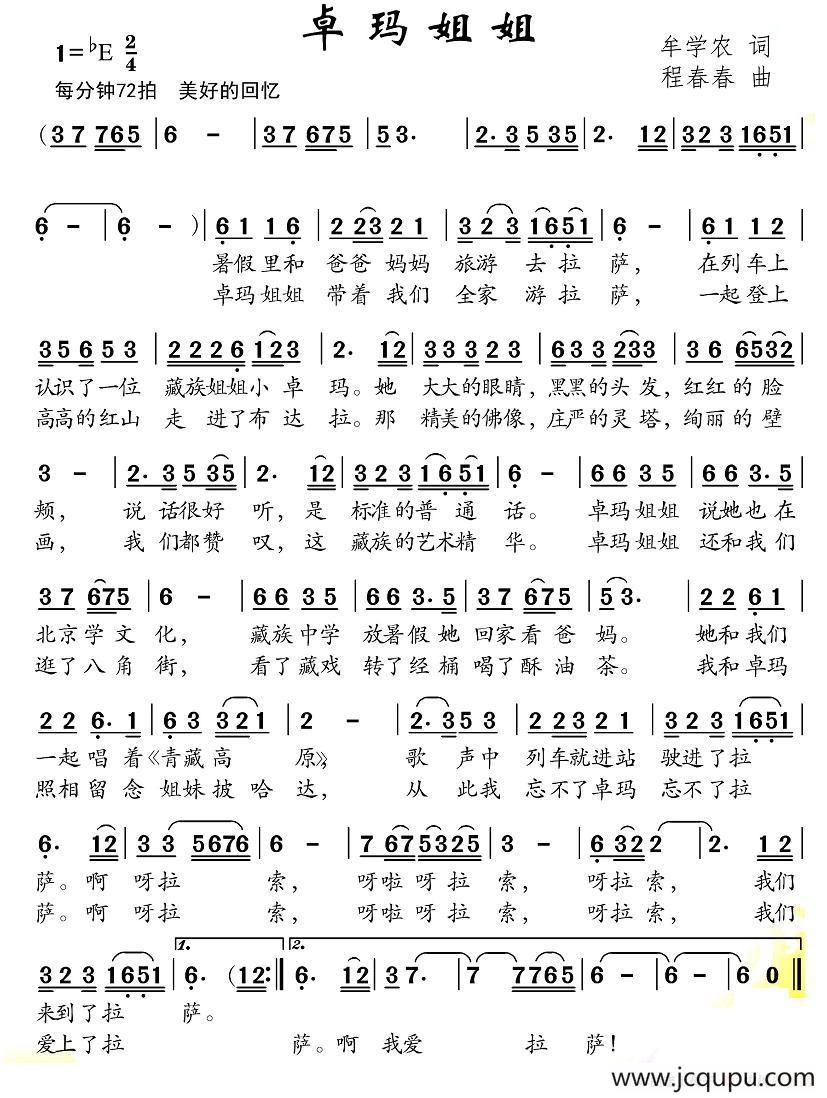 卓玛姐姐
1=♭E 2/4
牟学农 词
每分钟72拍 美好的回忆
程春春 曲
(3 7 765 | 6 - | 3 7 675 | 5 3· | 2· 3 5 35 | 2· 12 | 32 3 1651 |
6 - | 6 - ) | 6 1 1 6 | 2 23 2 1 | 32 3 1651 | 6 - | 6 1 1 2 |
暑假里和 爸爸 妈妈 旅游 去 拉 萨， 在列车上
卓玛姐姐 带着 我们 全家 游 拉 萨， 一起登上
3 5 6 5 3 | 2 2 2 6 1 2 3 | 2· 12 | 3 3 3 2 3 | 6 3 3 233 | 3 6 6532 |
认识了一位 藏族姐姐小 卓 玛。她 大大的眼睛，黑黑的头发，红红的 脸
高高的红山 走 进了布 达 拉。那 精美的佛像，庄严的灵塔，绚丽的 壁
3 - | 2· 3 5 35 | 2· 12 | 32 3 1651 | 6 - | 6 6 3 5 | 6 6 3· 5 |
颊， 说 话很好 听，是 标准的普 通 话。 卓玛姐姐 说她也在
画， 我 们都赞 叹，这 藏族的艺术精 华。 卓玛姐姐 还和我们
3 7 675 | 6 - | 6 6 3 5 | 6 6 3· 5 | 3 7 675 | 5 3· | 2 2 6 1 |
北京学 文 化， 藏族中学 放暑假她 回家看 爸 妈。 她和我们
逛了八 角 街， 看了藏戏 转了经桶 喝了酥 油 茶。 我和卓玛
2 2 6· 1 | 6 3 321 | 2 - | 2· 3 5 3 | 2 2 3 2 1 | 32 3 1651 |
一起唱 着《青藏高 原》， 歌 声中 列车就进站 驶进了拉
照相留 念 姐妹 披 哈 达， 从 此我 忘不了卓玛 忘不了拉
6· 12 | 3 3 5676 | 6 - | 7 67 5325 | 3 - | 6 32 2 | 2· 1 2 |
萨。啊 呀拉 索， 呀啦 呀 拉 索， 呀拉 索， 我们
萨。啊 呀拉 索， 呀啦 呀 拉 索， 呀拉 索， 我们
32 3 1651 | 1. 6· (12 :‖ 2. 6· 12 | 3 7· | 7 7765 | 6 - | 6 - | 6 0 ‖
来到了拉 萨。
爱上了拉 萨。啊 我爱 拉 萨！
www.jcqupu.com